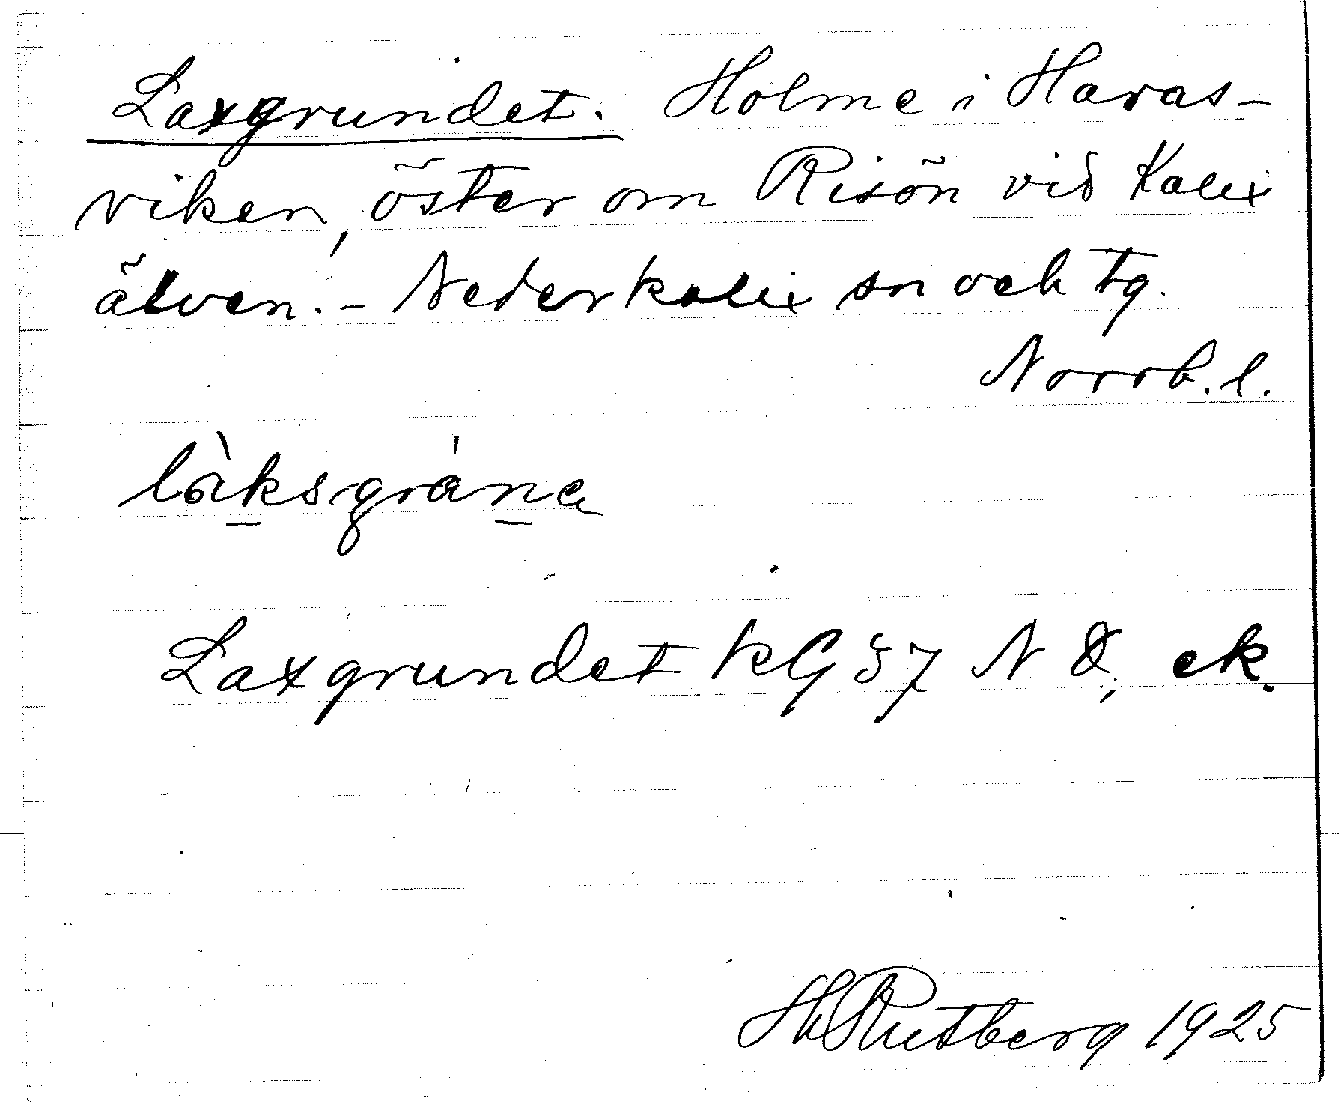 Laxgrundet. Holme i Haras-
viken, öster om Risön vid Kalix
älven. - Nederkalix sn och tg.
Norrb. l.
làksgràna
Laxgrundet KG 57 N Ö, ek.
Hd Rutberg 1925